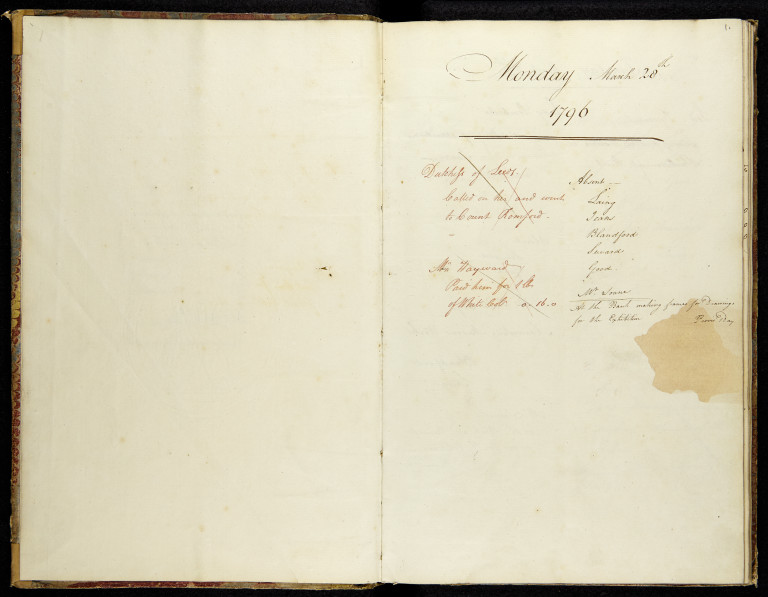 1.
Monday March 28th
1796
Dutchess of Leeds.
Called on her and went
to Count Romford.
"
Mr. Hayward
Paid him for 1 lb
of White Cob 0. 16. 0
Absent
Laing
Jeans
Blandford
Seward
Good.
Mr. Soane
At the Bank making frames for Drawings
for the Exhibition Day